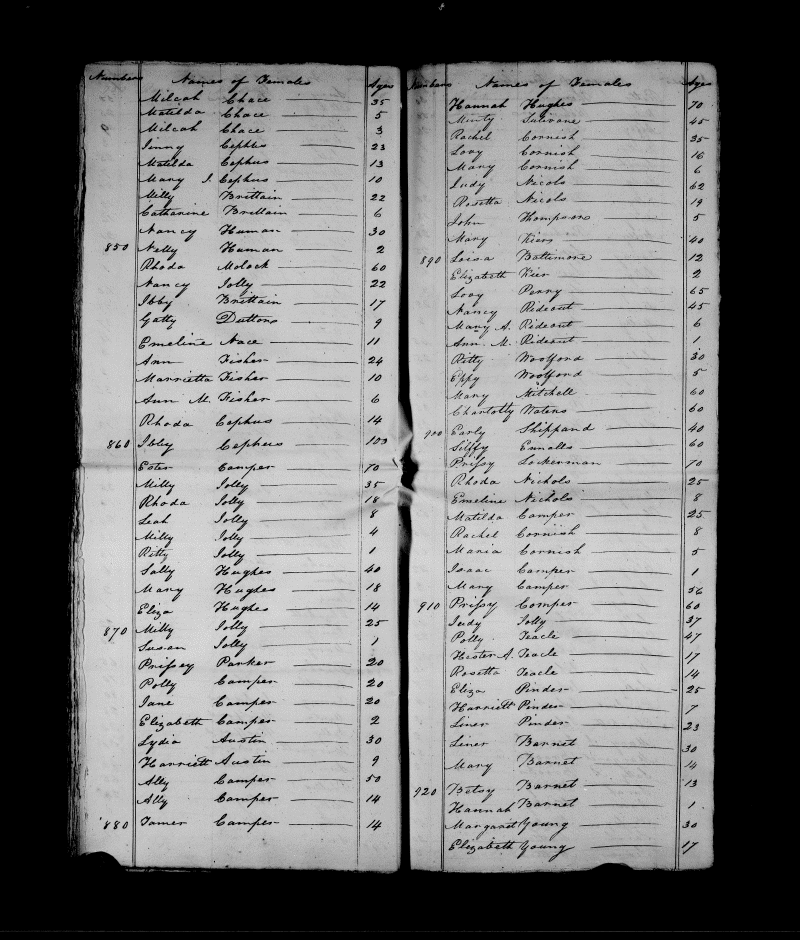 Numbers Names of Females Ages
Milcah Chace 35
Matilda Chace 5
Milcah Chace 3
Jinny Cephus 23
Matilda Cephus 13
Mary J. Cephus 10
Milly Brittain 22
Catharine Brittain 6
Nancy Human 30
850 Nelly Human 2
Rhoda Molock 60
Nancy Jolly 22
Ibby Brittain 17
Gatty Duttons 9
Emeline Nace 11
Ann Fisher 24
Marrietta Fisher 10
Ann M. Fisher 6
Rhoda Cephus 14
860 Ibbey Cephus 103
Ester Camper 70
Milly Jolly 35
Rhoda Jolly 18
Leah Jolly 8
Milly Jolly 4
Ritty Jolly 1
Sally Hughes 40
Mary Hughes 18
Eliza Hughes 14
870 Milly Jolly 25
Susan Jolly 1
Prissey Parker 20
Polly Camper 20
Jane Camper 20
Elizabeth Camper 2
Lydia Austin 30
Harriett Austin 9
Ally Camper 50
Ally Camper 14
880 Tamer Camper 14
Numbers Names of Females Ages
Hannah Hughes 70
Minty Sulivane 45
Rachel Cornish 35
Lovy Cornish 16
Mary Cornish 6
Judy Nicols 62
Rosetta Nicols 19
John Thompson 5
Mary Kiers 40
890 Loisa Baltimore 12
Elizabeth Kier 2
Lovy Perry 65
Nancy Rideout 45
Mary A. Rideout 6
Ann M. Rideout 1
Ritty Woolford 30
Eppy Woolford 5
Mary Mitchell 60
Charlotty Waters 60
900 Early Shippand 40
Silffy Ennalls 60
Prissy Lockerman 70
Rhoda Nichols 25
Emeline Nichols 8
Matilda Camper 25
Rachel Cornish 8
Maria Cornish 5
Isaac Camper 1
Mary Camper 56
910 Prissy Comper 60
Judy Jolly 37
Polly Teacle 47
Hester A. Teacle 17
Rosetta Teacle 14
Eliza Pinder 25
Harriett Pinder 7
Liner Pinder 23
Liner Barnet 30
Mary Barnet 14
920 Betsy Barnet 13
Hannah Barnet 1
Margaret Young 30
Elizabeth Young 17